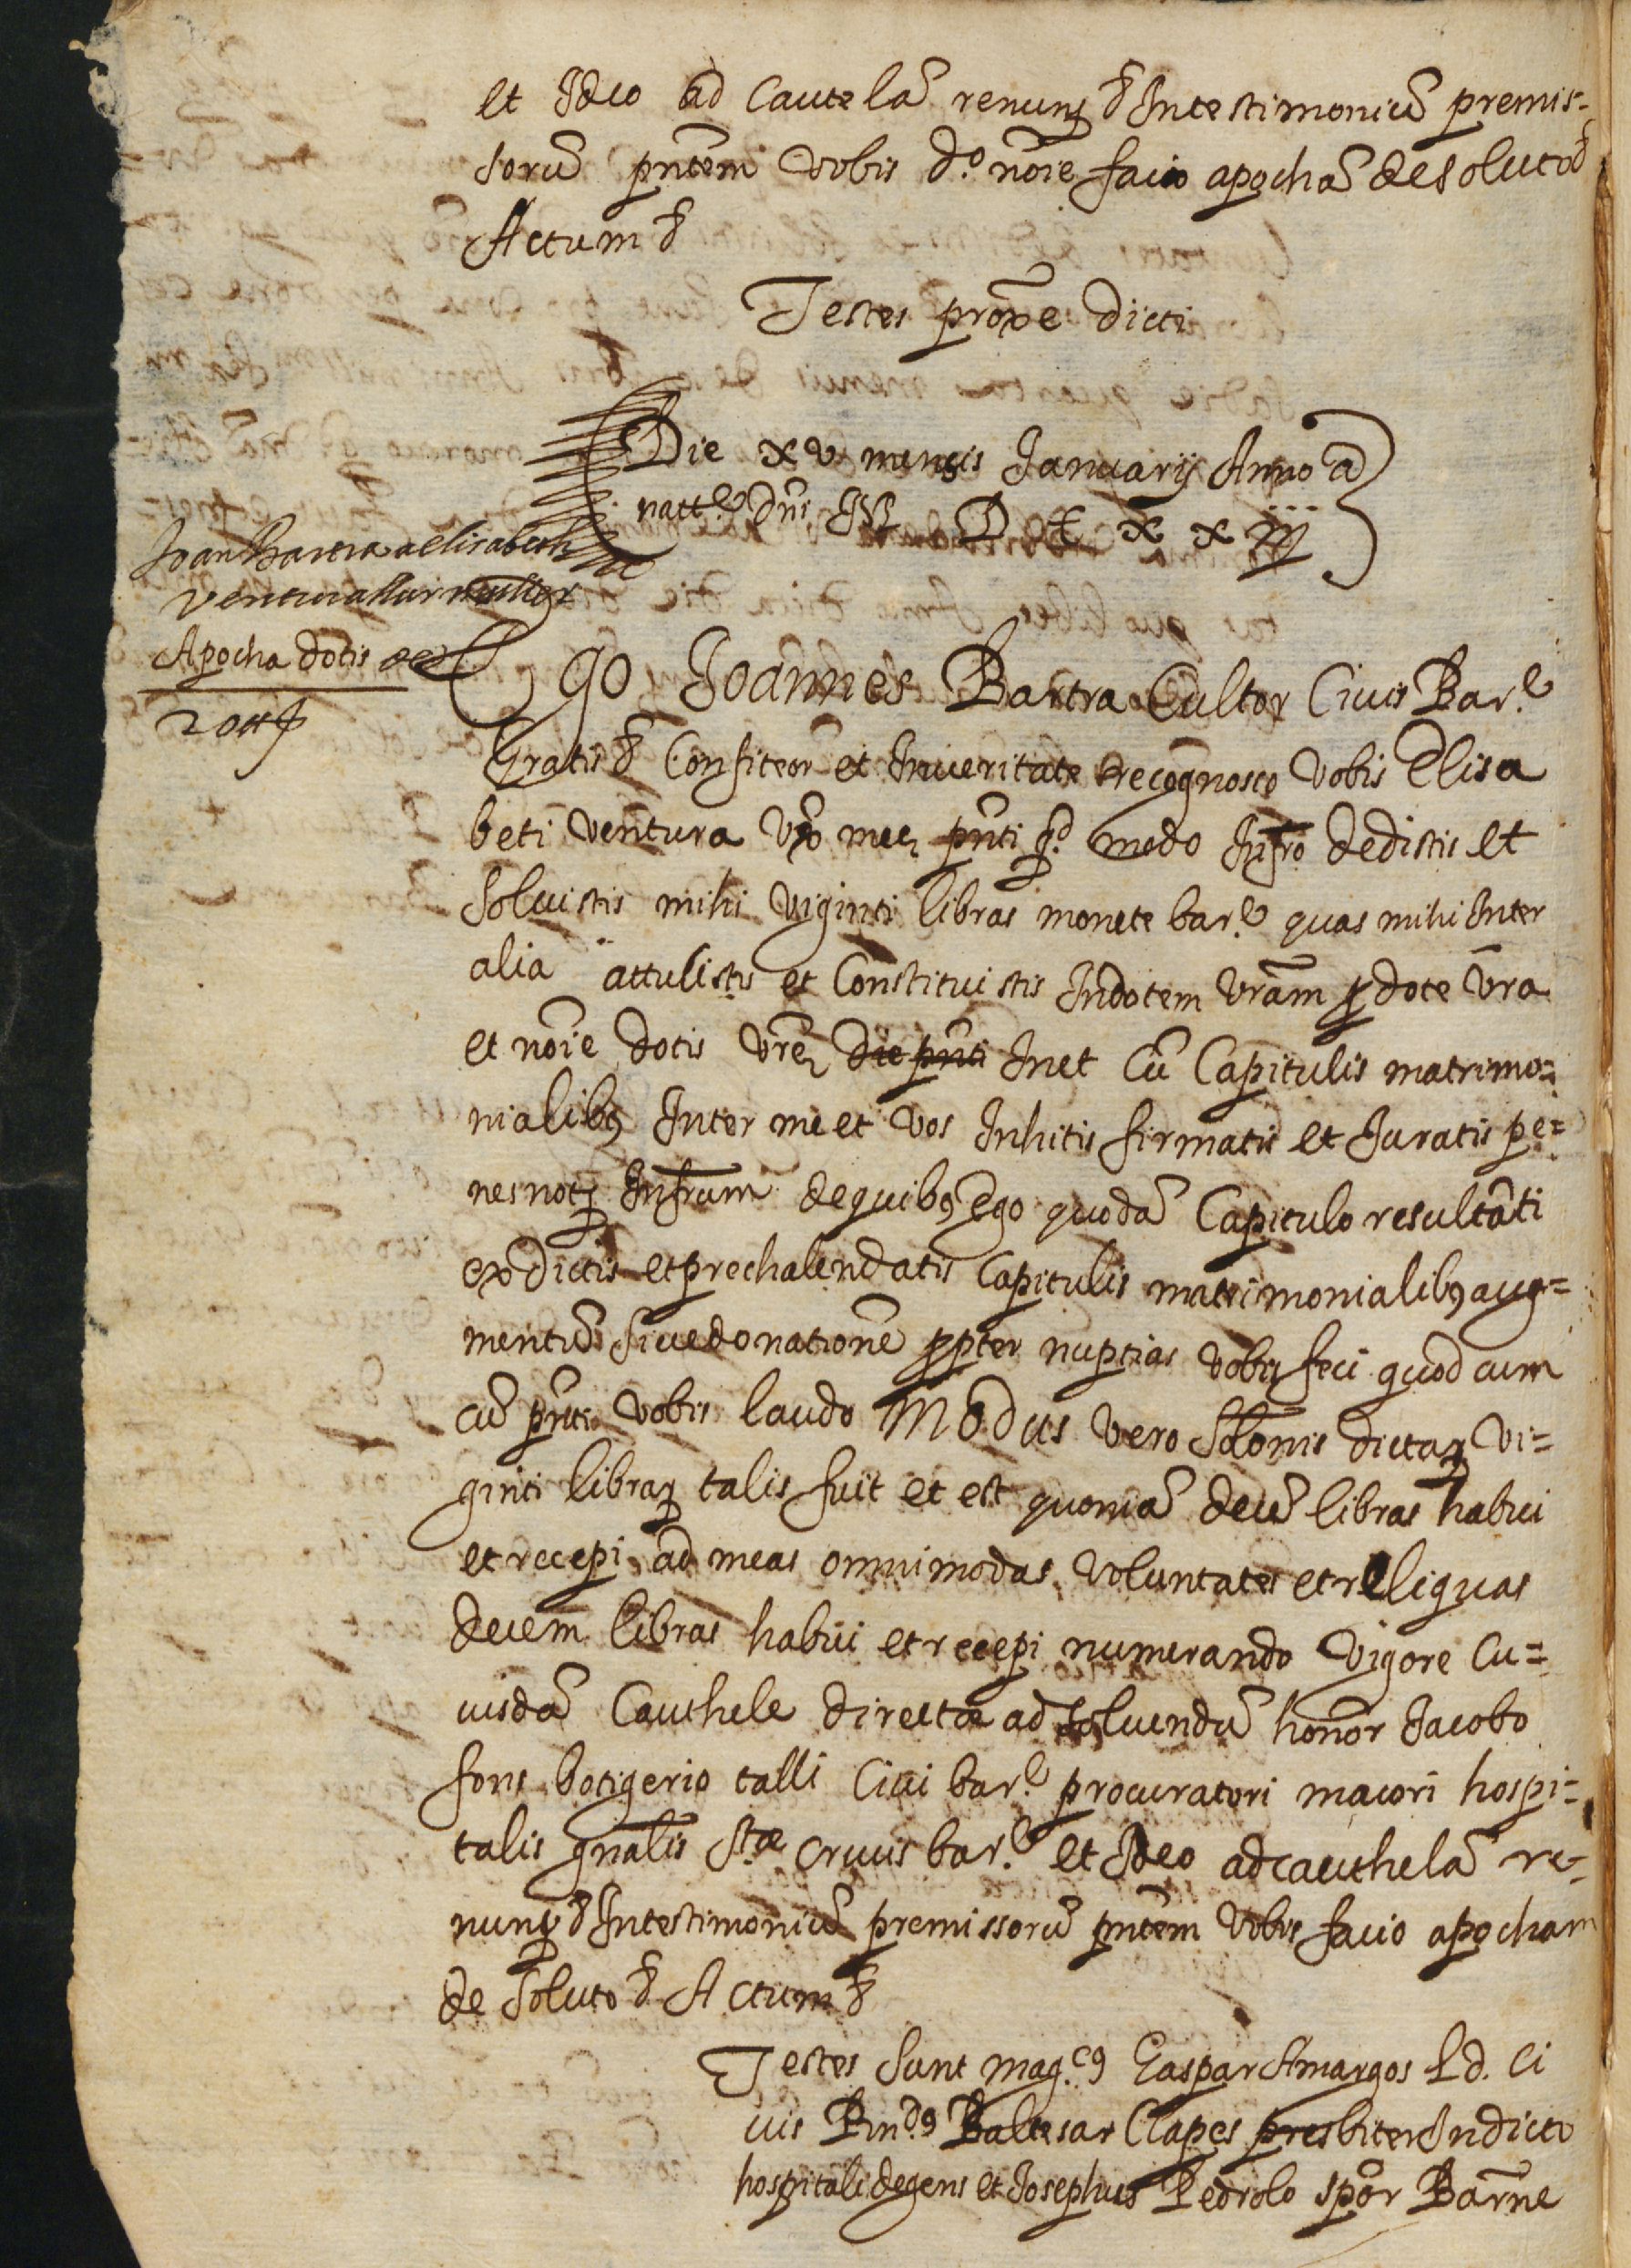 et Ideo ad Cautelā renunȝ & Intestimoniū premis=
sorū pn̄tem vobis d.º nōie facio apochā desoluto &
Actum &
Testes prōxe dicti
Die xv mensis Januarij Anno a
natt.e Dn̄i M D C x x iij
Joan Bartra a elisabeth
ventura sa muller
Apocha dotis de
20 ₶
Ego Joannes Bartra Cultor Ciuis Bar.e
Gratis & Confiteor et Inueritate recognosco vobis Elisa
beti ventura vxō mee pn̄ti q.d modo Infr̄o dedistis et
Soluistis mihi viginti libras monete bar.e quas mihi Inter
alia attulistis et Constituistis Indotem vr̄am ꝓ dote vr̄a
et nōie dotis vr̄e Inet Cū Capitulis matrimo=
nialibꝯ Inter me et vos Inhitis firmatis et Juratis pe=
nes notꝝ Infrum dequibꝯ Ego quodā Capitulo resultāti
ex dictis et prechalendatis Capitulis matrimonialibꝯ aug=
mentū siue donationē ꝓpter nuptias vobis feci quod cum
cū pn̄ti vobis laudo Modus vero Sol̄onis dictaꝝ vi=
ginti libraꝝ talis fuit et est quoniā decē libras habui
et recepi ad meas omnimodas voluntates et reliquas
decem libras habui et recepi numerando vigore Cu=
iusdā Cauthele directæ ad soluendū honor̄ Jacobo
fons botigerio talli Ciui bar.e procuratori maiori hospi=
talis gn̄alis S.tæ crucis bar.e et Ideo ad cauthelā re=
nunȝ & Intestimoniū premissorū pn̄tem vobis facio apocham
de Soluto & Actum &
Testes Sunt mag.cꝯ Gaspar Amargos Ci
uis Rn.dꝯ Baltesar Clapes presbiter Indicto
hospitali degens et Josephus Pedrolo sp̄or Barn̄e